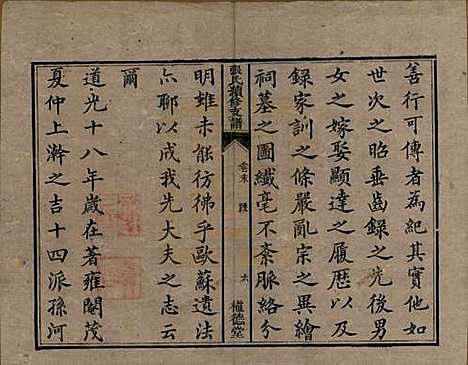 善行可傳者為紀其實他如
世次之昭垂齒錄之先後男
女之嫁娶顯達之履歷以及
錄家訓之條嚴亂宗之異繪
祠墓之圖纖毫不紊脈絡分
張氏續修支譜
卷末
六
植德堂
明雖未能彷彿乎歐蘇遺法
亦聊以成我先大夫之志云
爾
道光十八年歲在著雍閹茂
夏仲上澣之吉十四派孫河